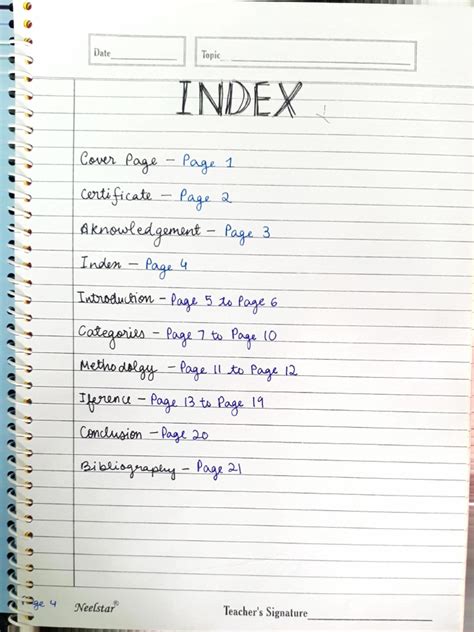 Date____________ Topic____________________________
INDEX
Cover Page – Page 1
Certificate – Page 2
Aknowledgement – Page 3
Index – Page 4
Introduction – Page 5 to Page 6
Categories – Page 7 to Page 10
Methodolgy – Page 11 to Page 12
Iference – Page 13 to Page 19
Conclusion – Page 20
Bibliography – Page 21
ge 4 Neelstar® Teacher's Signature____________________